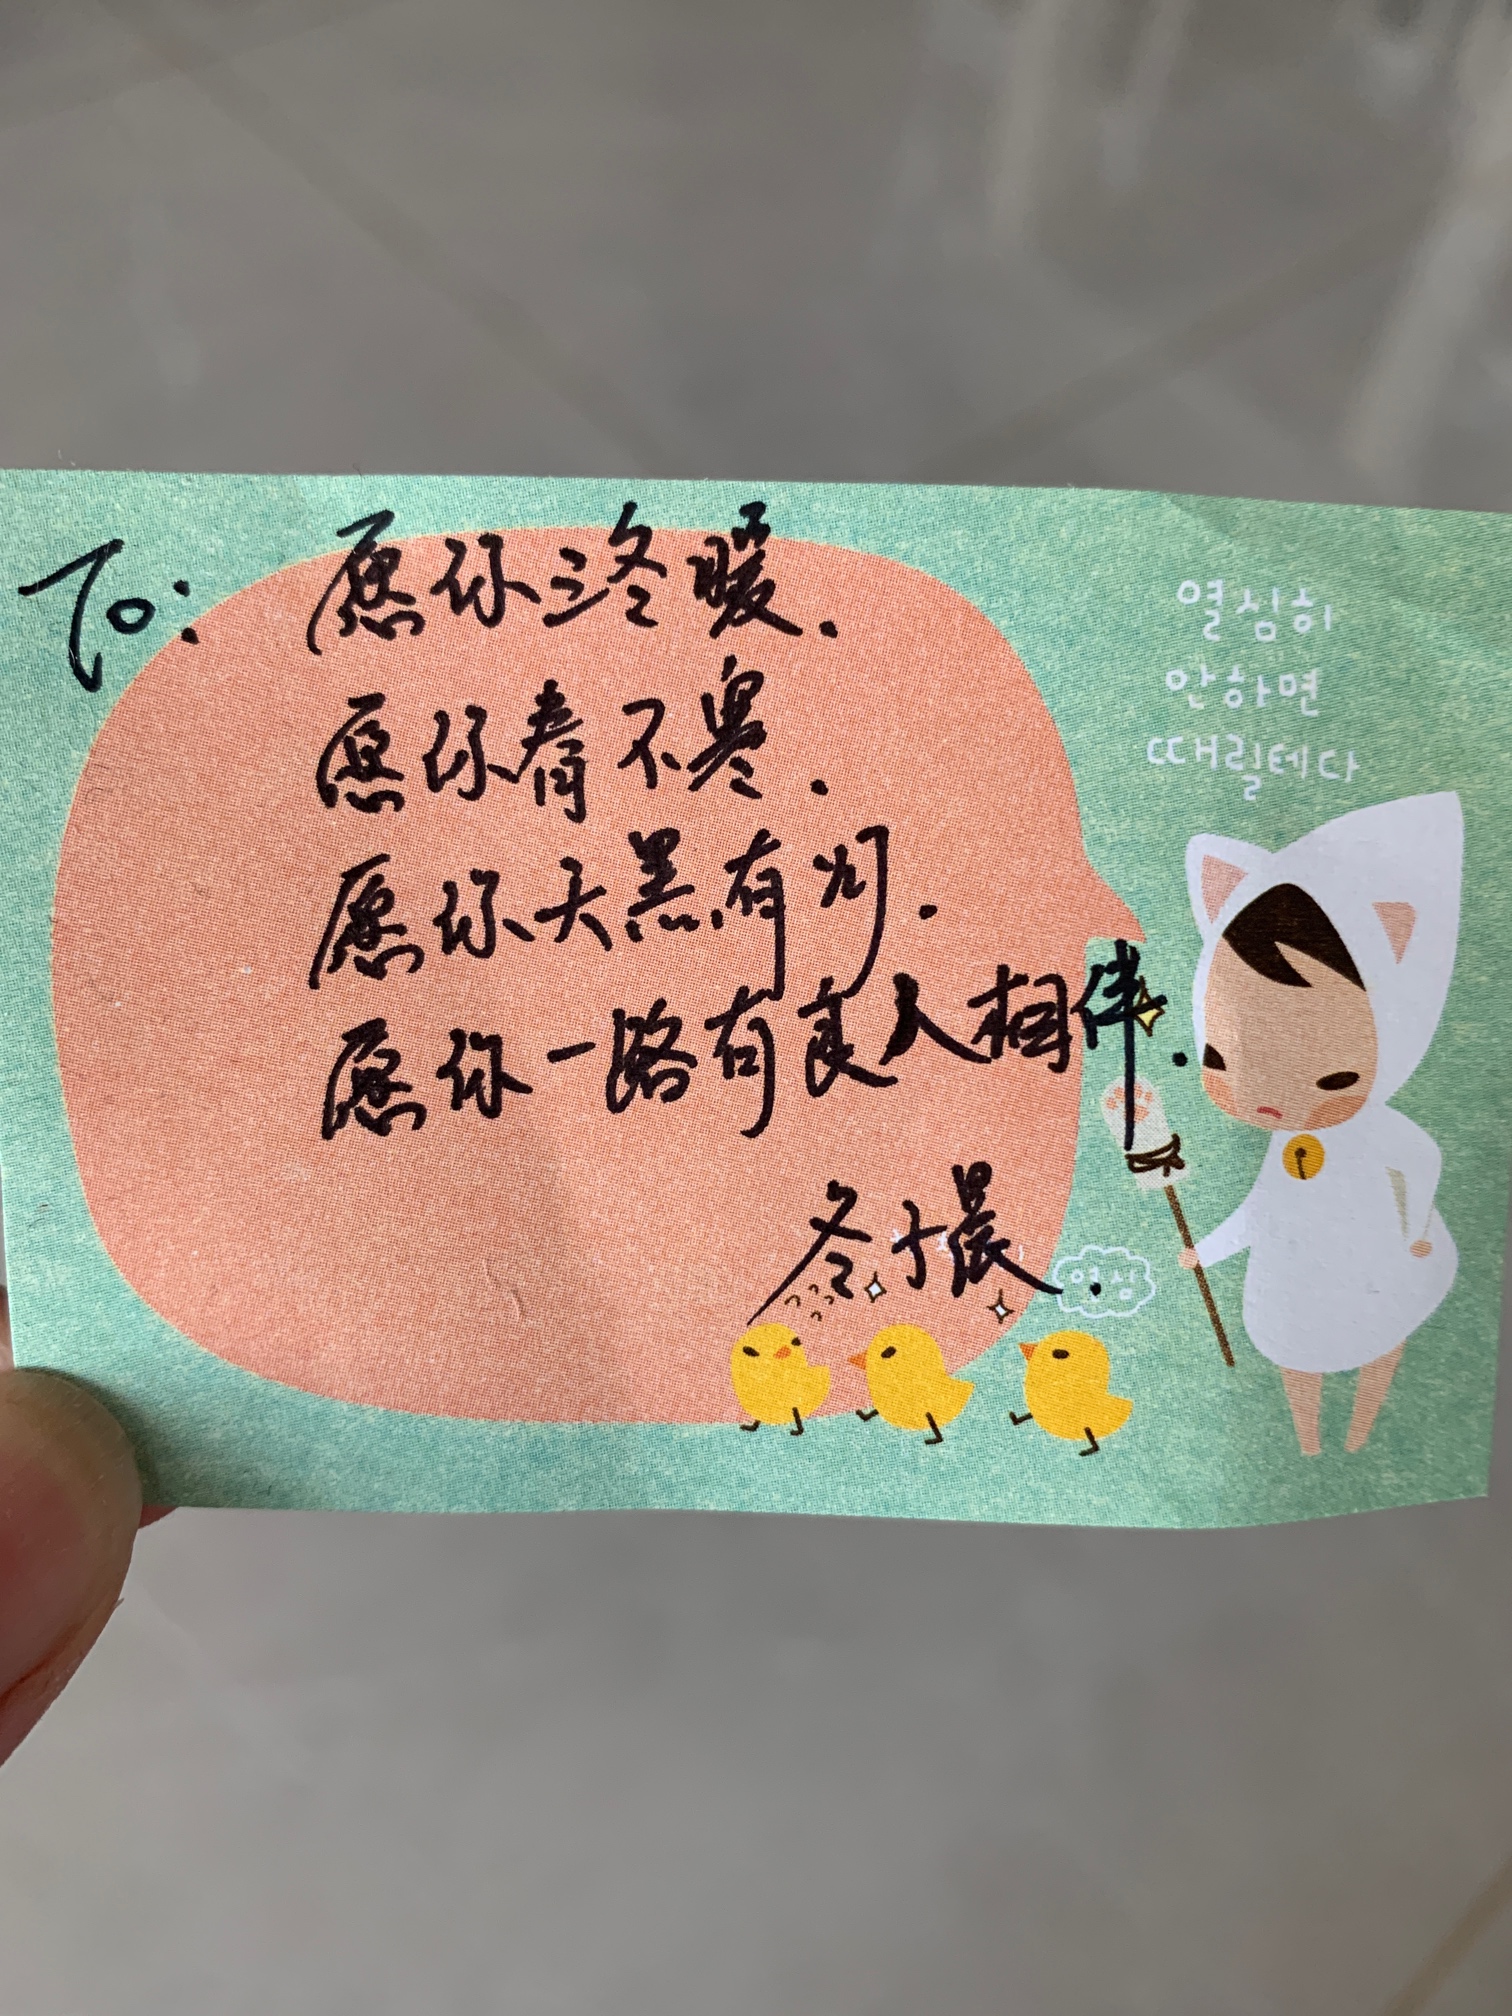 To: 愿你三冬暖.
愿你春不寒.
愿你天黑有灯.
愿你一路有良人相伴.
冬十晨.
열심히
안하면
때릴테다
열심